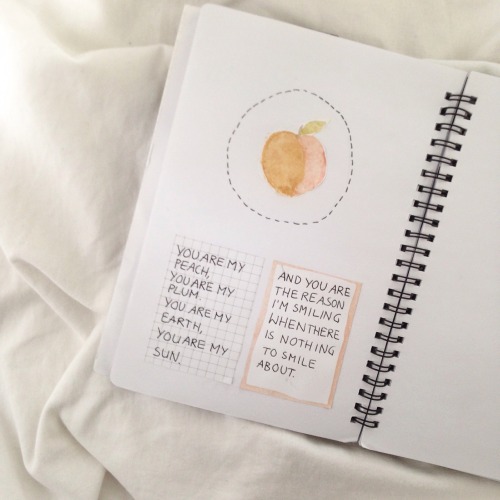 YOU ARE MY
PEACH,
YOU ARE MY
PLUM.
YOU ARE MY
EARTH,
YOU ARE MY
SUN.
AND YOU ARE
THE REASON
I'M SMILING
WHEN THERE
IS NOTHING
TO SMILE
ABOUT.